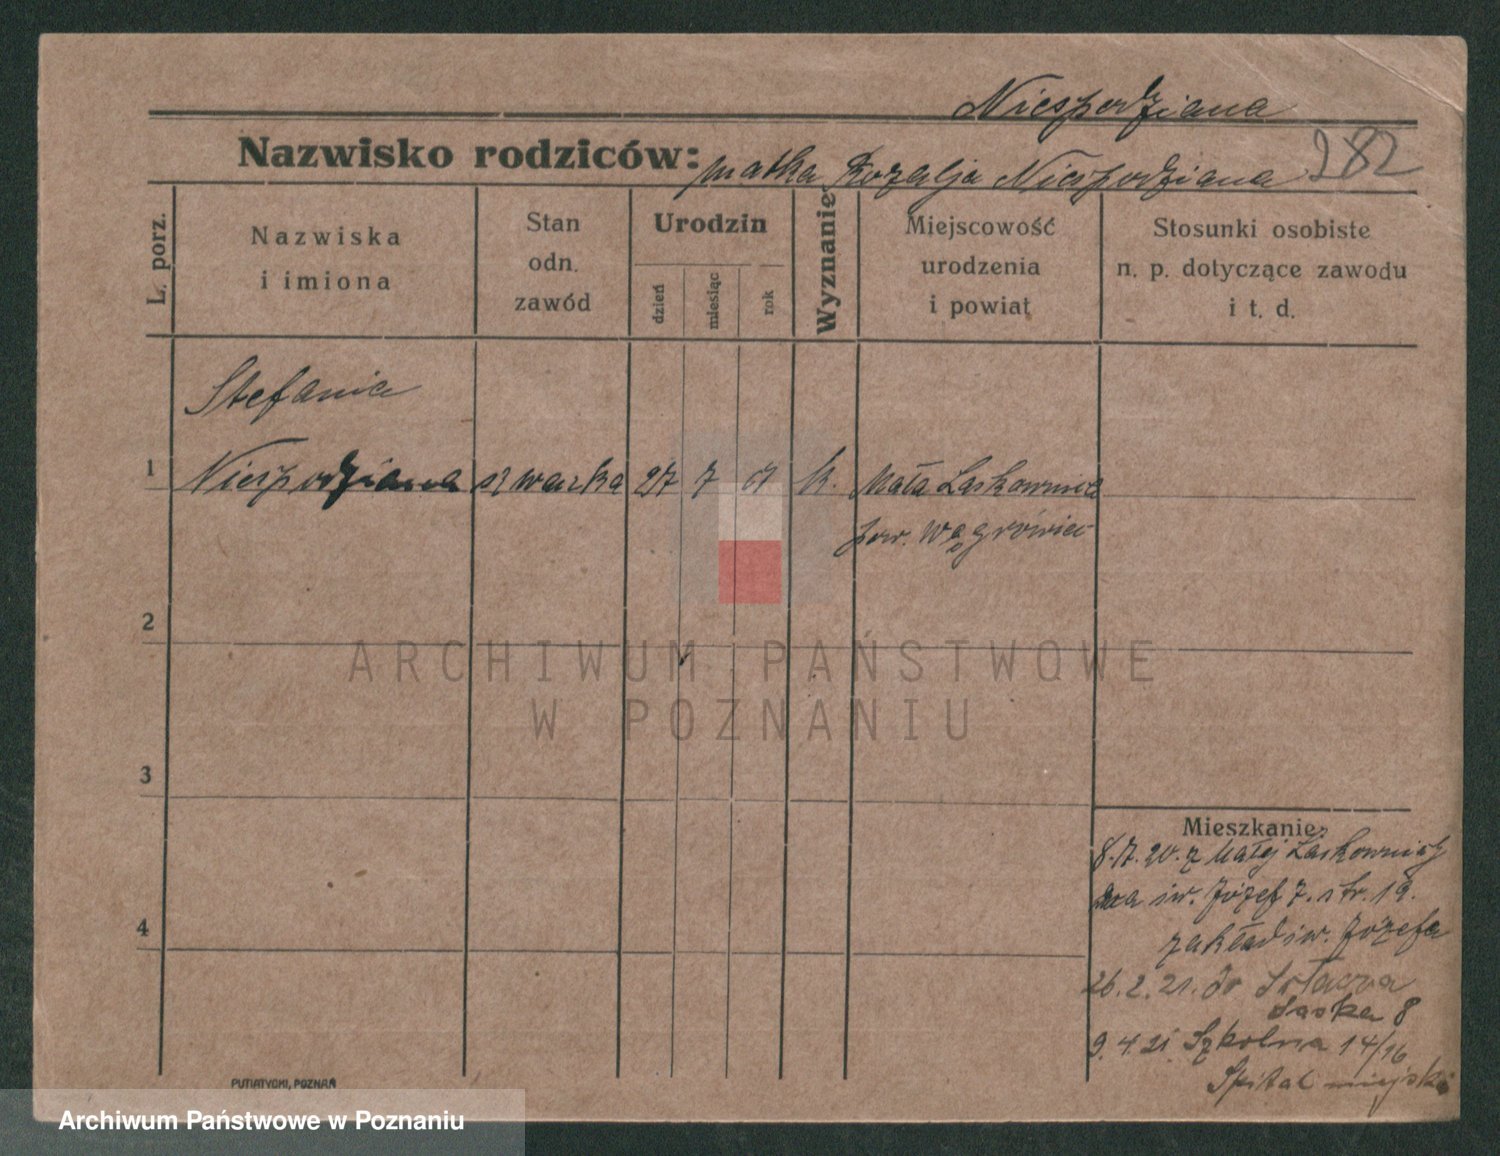 Niespodziana
Nazwisko rodziców: matka Rozalja Niespodziana 982
L. porz.
Nazwiska
i imiona
Stan
odn.
zawód
Urodzin
dzień
miesiąc
rok
Wyznanie
Miejscowość
urodzenia
i powiat
Stosunki osobiste
n. p. dotyczące zawodu
i t. d.
Stefania
1 Niespodziana szwaczka 27 7 01 k. Mała Laskownica
pow. Wągrówiec
2
3
4
Mieszkanie:
8.7.20. z Małej Laskownicy
św. Józef 7. str. 19.
zakład św. Józefa
26.2.21. Dr
Łąska 8
9.4.21 Szkolna 14/16
Szpital miejski
PUTIATYCKI, POZNAŃ
ARCHIWUM PAŃSTWOWE
W POZNANIU
Archiwum Państwowe w Poznaniu